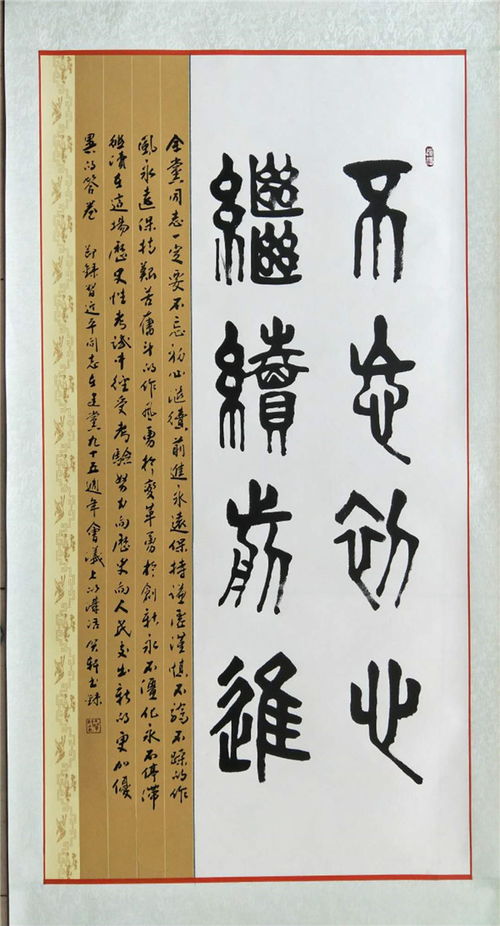 不忘初心
繼續前進
全黨同志一定要不忘初心繼續前進永遠保持謙虛謹慎不驕不躁的作
風永遠保持艱苦奮斗的作風勇於變革勇於創新永不僵化永不停滯
繼續在這場歷史性考試中經受考驗努力向歷史向人民交出新的更加優
異的答卷 節錄習近平同志在建黨九十五週年會議上的講話